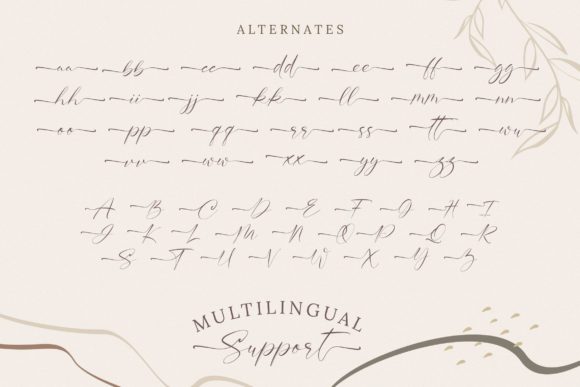 ALTERNATES
aa bb cc dd ee ff gg
hh ii jj kk ll mm nn
oo pp qq rr ss tt uu
vv ww xx yy zz
A B C D E F G H I
J K L M N O P Q R
S T U V W X Y Z
MULTILINGUAL
Support